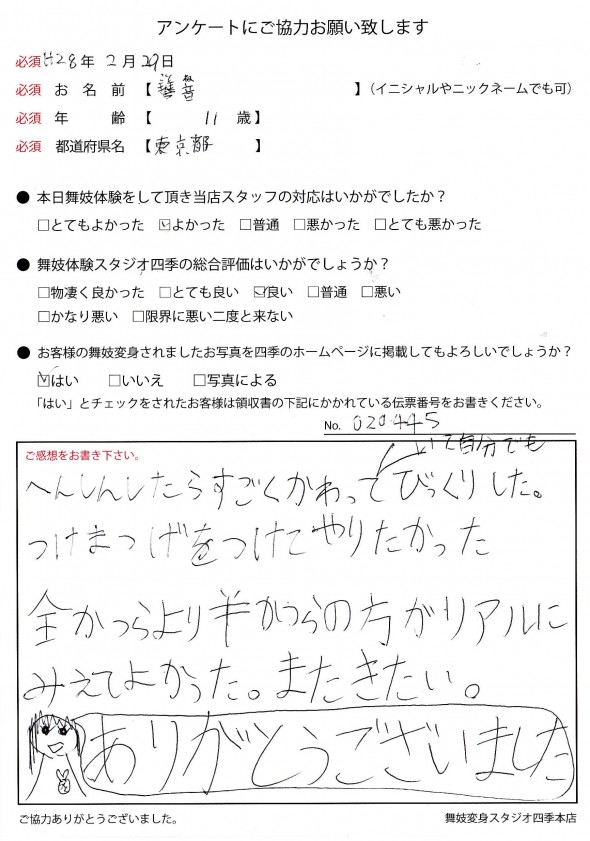 アンケートにご協力お願い致します
必須 H28年 2月29日
必須 お名前【 】（イニシャルやニックネームでも可）
必須 年齢【 11 歳】
必須 都道府県名【 東京都 】
● 本日舞妓体験をして頂き当店スタッフの対応はいかがでしたか？
□とてもよかった ☑よかった □普通 □悪かった □とても悪かった
● 舞妓体験スタジオ四季の総合評価はいかがでしょうか？
□物凄く良かった □とても良い ☑良い □普通 □悪い
□かなり悪い □限界に悪い二度と来ない
● お客様の舞妓変身されましたお写真を四季のホームページに掲載してもよろしいでしょうか？
☑はい □いいえ □写真による
「はい」とチェックをされたお客様は領収書の下記にかかれている伝票番号をお書きください。
No. 020445
ご感想をお書き下さい。
いて自分でも
へんしんしたらすごくかわってびっくりした。
つけまつげをつけてやりたかった
全かつらより半かつらの方がリアルに
みえてよかった。またきたい。
ありがとうございました
ご協力ありがとうございました。
舞妓変身スタジオ四季本店